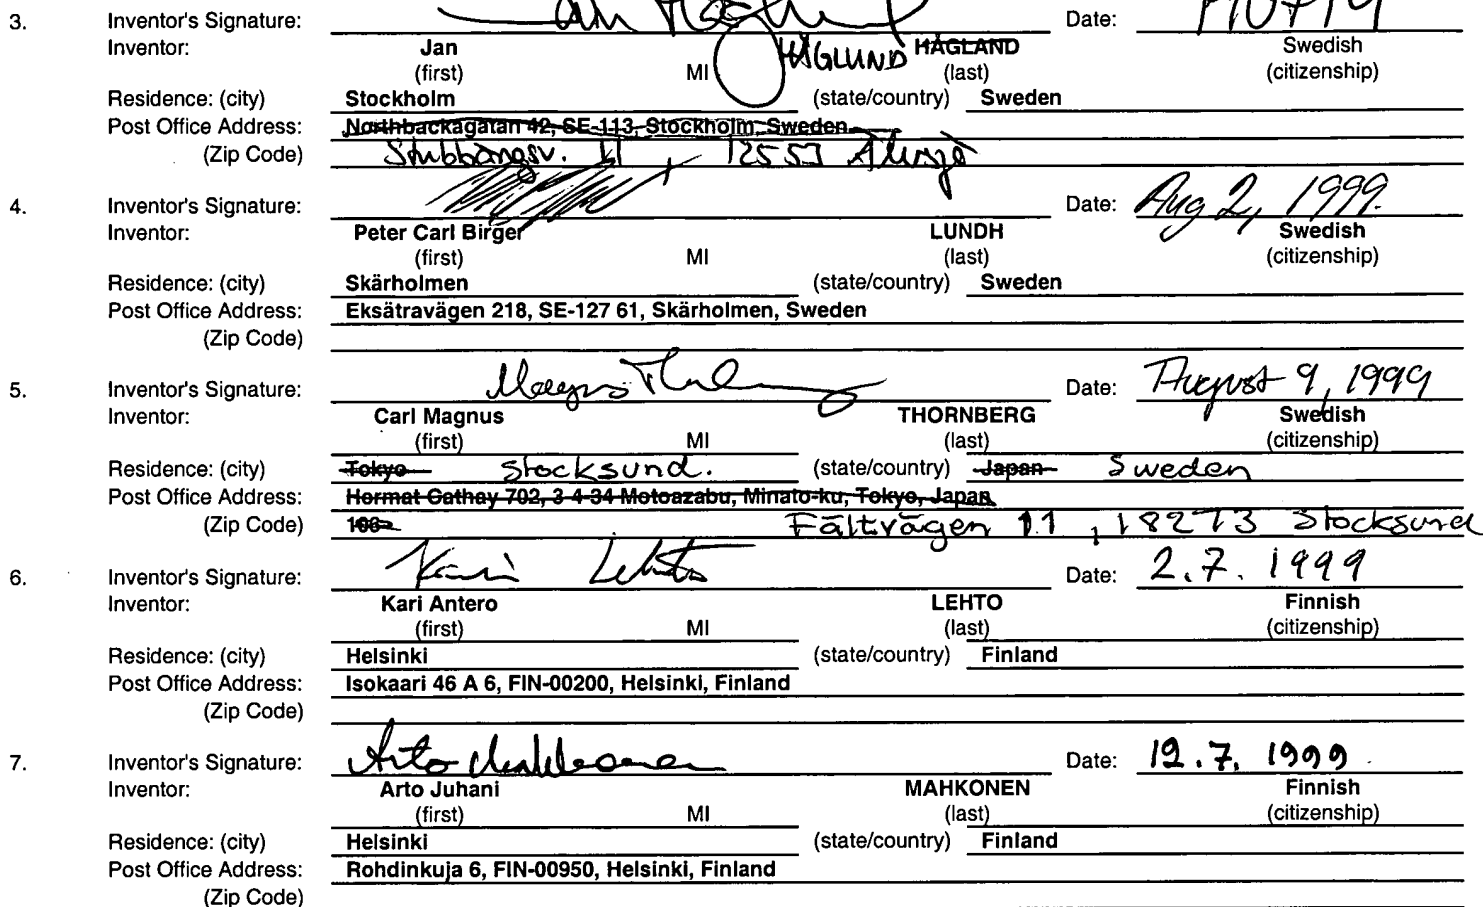 3. Inventor's Signature: Date:
Inventor: Jan HÄGLUND HÄGLAND Swedish
(first) MI (last) (citizenship)
Residence: (city) Stockholm (state/country) Sweden
Post Office Address: Northbackagatan 42, SE-113, Stockholm, Sweden
(Zip Code) 12553 Älvsjö
4. Inventor's Signature: Date: Aug 2, 1999.
Inventor: Peter Carl Birger LUNDH Swedish
(first) MI (last) (citizenship)
Residence: (city) Skärholmen (state/country) Sweden
Post Office Address: Eksätravägen 218, SE-127 61, Skärholmen, Sweden
(Zip Code)
5. Inventor's Signature: Magnus Date: August 9, 1999
Inventor: Carl Magnus THORNBERG Swedish
(first) MI (last) (citizenship)
Residence: (city) Tokyo Stocksund. (state/country) Japan Sweden
Post Office Address: Hormat Cathay 702, 3-4-34 Motoazabu, Minato-ku, Tokyo, Japan
(Zip Code) 106 Fältvägen 11, 18273 Stocksund
6. Inventor's Signature: Kari Lehto Date: 2.7. 1999
Inventor: Kari Antero LEHTO Finnish
(first) MI (last) (citizenship)
Residence: (city) Helsinki (state/country) Finland
Post Office Address: Isokaari 46 A 6, FIN-00200, Helsinki, Finland
(Zip Code)
7. Inventor's Signature: Arto Date: 12.7. 1999
Inventor: Arto Juhani MAHKONEN Finnish
(first) MI (last) (citizenship)
Residence: (city) Helsinki (state/country) Finland
Post Office Address: Rohdinkuja 6, FIN-00950, Helsinki, Finland
(Zip Code)